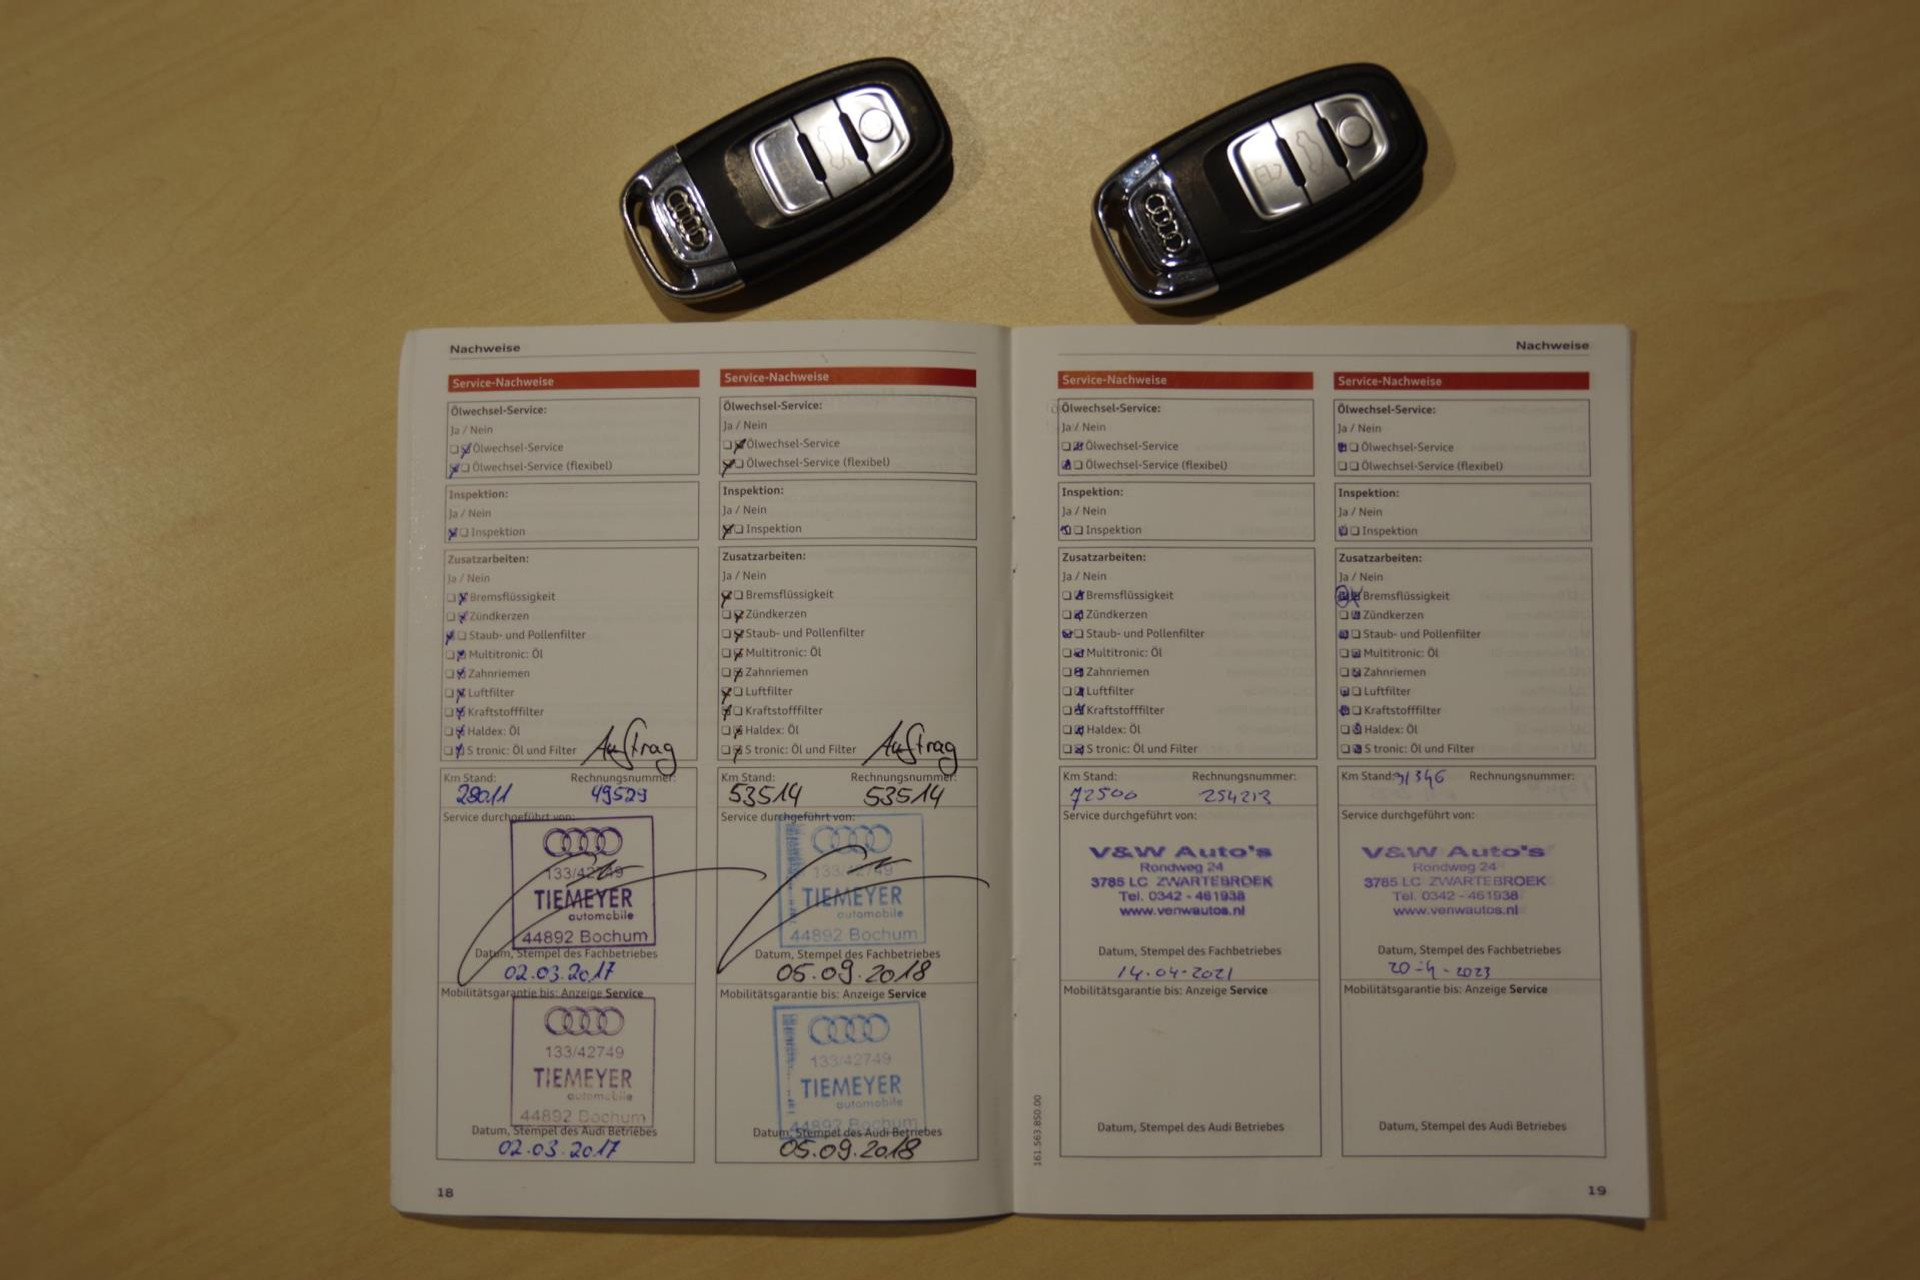 Nachweise
Service-Nachweise
Ölwechsel-Service:
Ja / Nein
Ölwechsel-Service
Ölwechsel-Service (flexibel)
Inspektion:
Ja / Nein
Inspektion
Zusatzarbeiten:
Ja / Nein
Bremsflüssigkeit
Zündkerzen
Staub- und Pollenfilter
Multitronic: Öl
Zahnriemen
Luftfilter
Kraftstofffilter
Haldex: Öl
S tronic: Öl und Filter
Auftrag
Km Stand: Rechnungsnummer:
28011 49529
Service durchgeführt von:
133/42749
TIEMEYER
automobile
44892 Bochum
Datum, Stempel des Fachbetriebes
02.03.2017
Mobilitätsgarantie bis: Anzeige Service
133/42749
TIEMEYER
automobile
44892 Bochum
Datum, Stempel des Audi Betriebes
02.03.2017
18
Service-Nachweise
Ölwechsel-Service:
Ja / Nein
Ölwechsel-Service
Ölwechsel-Service (flexibel)
Inspektion:
Ja / Nein
Inspektion
Zusatzarbeiten:
Ja / Nein
Bremsflüssigkeit
Zündkerzen
Staub- und Pollenfilter
Multitronic: Öl
Zahnriemen
Luftfilter
Kraftstofffilter
Haldex: Öl
S tronic: Öl und Filter
Auftrag
Km Stand: Rechnungsnummer:
53514 53514
Service durchgeführt von:
133/42749
TIEMEYER
automobile
44892 Bochum
Datum, Stempel des Fachbetriebes
05.09.2018
Mobilitätsgarantie bis: Anzeige Service
133/42749
TIEMEYER
automobile
44892 Bochum
Datum, Stempel des Audi Betriebes
05.09.2018
Nachweise
Service-Nachweise
Ölwechsel-Service:
Ja / Nein
Ölwechsel-Service
Ölwechsel-Service (flexibel)
Inspektion:
Ja / Nein
Inspektion
Zusatzarbeiten:
Ja / Nein
Bremsflüssigkeit
Zündkerzen
Staub- und Pollenfilter
Multitronic: Öl
Zahnriemen
Luftfilter
Kraftstofffilter
Haldex: Öl
S tronic: Öl und Filter
Km Stand: Rechnungsnummer:
72500 254213
Service durchgeführt von:
V&W Auto's
Rondweg 24
3785 LC ZWARTEBROEK
Tel. 0342 - 461938
www.venwautos.nl
Datum, Stempel des Fachbetriebes
14-04-2021
Mobilitätsgarantie bis: Anzeige Service
Datum, Stempel des Audi Betriebes
161.563.850.00
Service-Nachweise
Ölwechsel-Service:
Ja / Nein
Ölwechsel-Service
Ölwechsel-Service (flexibel)
Inspektion:
Ja / Nein
Inspektion
Zusatzarbeiten:
Ja / Nein
Bremsflüssigkeit
Zündkerzen
Staub- und Pollenfilter
Multitronic: Öl
Zahnriemen
Luftfilter
Kraftstofffilter
Haldex: Öl
S tronic: Öl und Filter
Km Stand: 91346 Rechnungsnummer:
Service durchgeführt von:
V&W Auto's
Rondweg 24
3785 LC ZWARTEBROEK
Tel. 0342 - 461938
www.venwautos.nl
Datum, Stempel des Fachbetriebes
20-4-2023
Mobilitätsgarantie bis: Anzeige Service
Datum, Stempel des Audi Betriebes
19